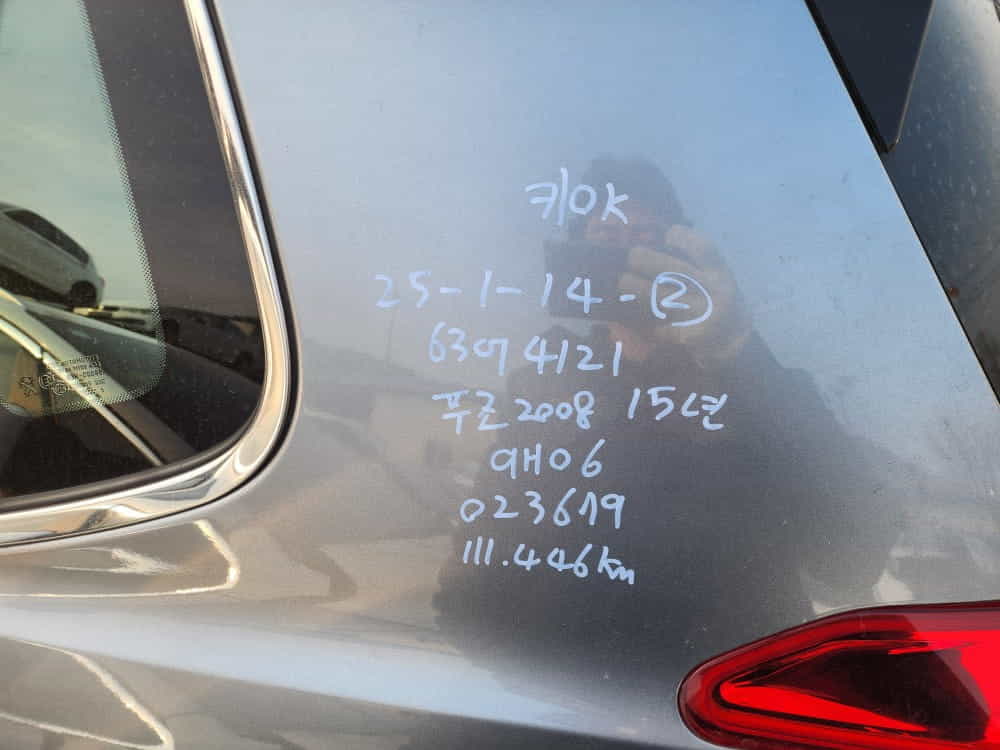 키OK
25-1-14-②
63어4121
푸조2008 15년
9H06
023619
111.446km